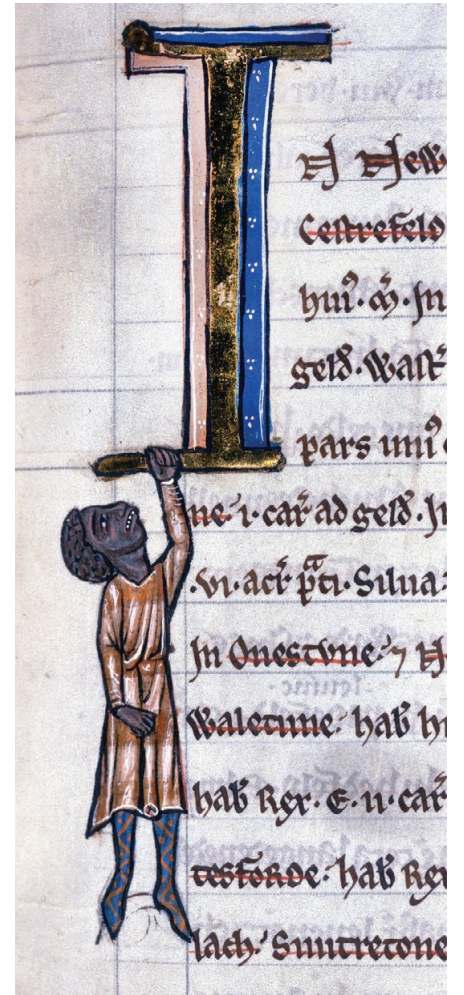 IN New
Cestrefeld
huiꝰ. m̄. In
geld. Walt̄
pars uniꝰ
ne. i. car̄ ad geld. In
.vi. acr̄ pᵃti. Silua.
In Onestune. ⁊ N
Waletune. hab̄ hi
hab̄ Rex. E. ii. car̄
tesforde. hab̄ Rex
lach. Sinitretone